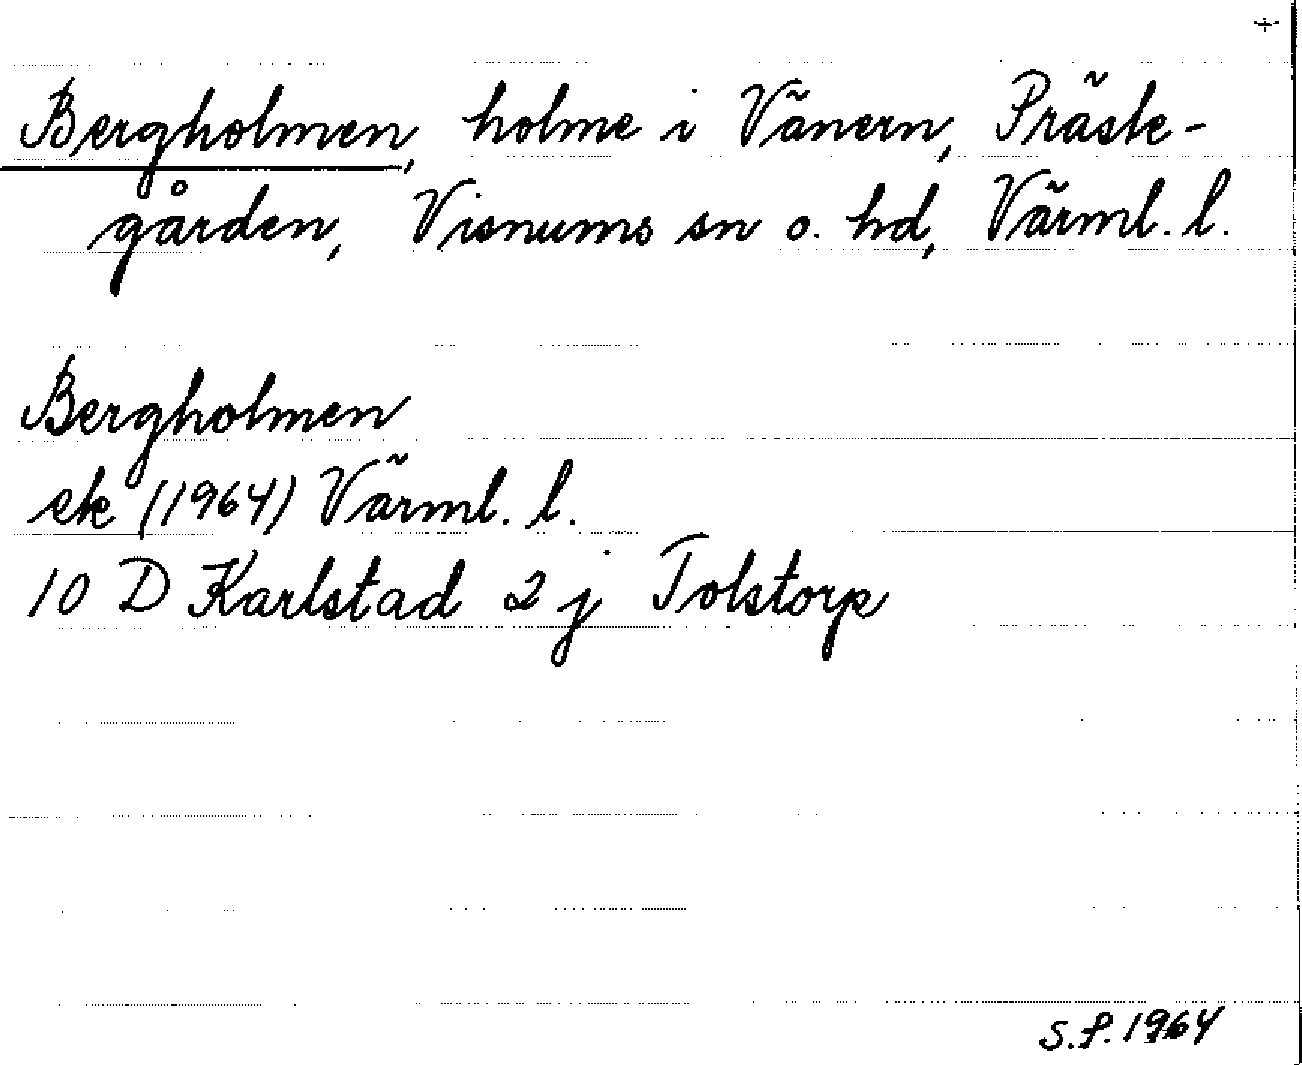 +
Bergholmen, holme i Vänern, Präste-
gården, Visnums sn o. hd, Värml. l.
Bergholmen
ek (1964) Värml. l.
10 D Karlstad 2 j Tolstorp
S.P. 1964